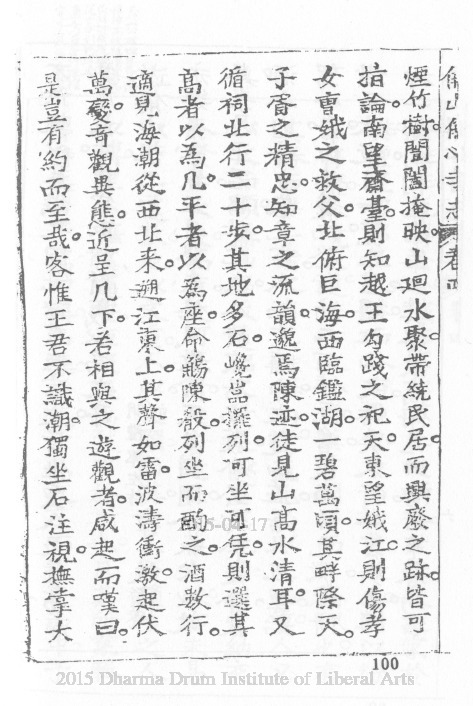 煙竹樹闤闠掩映山迴水聚帶統民居而興廢之跡皆可
指論南望齋臺則知越王勾踐之祀天東望娥江則傷孝
女曹娥之救父北俯巨海西臨鑑湖一碧萬頃其畔際天
子胥之精忠知章之流韻邈焉陳迹徒見山高水清耳又
循祠北行二十步其地多石巉嵓擺列可坐可凭則選其
高者以為几平者以為座命觴陳殽列坐而酌之酒數行
適見海潮從西北来遡江東上其聲如雷波濤衝激起伏
萬變竒觀異態近呈几下若相與之遊觀者咸起而嘆曰
是豈有約而至哉客惟王君不識潮獨坐石注視撫掌大
100
2015-04-17
2015 Dharma Drum Institute of Liberal Arts